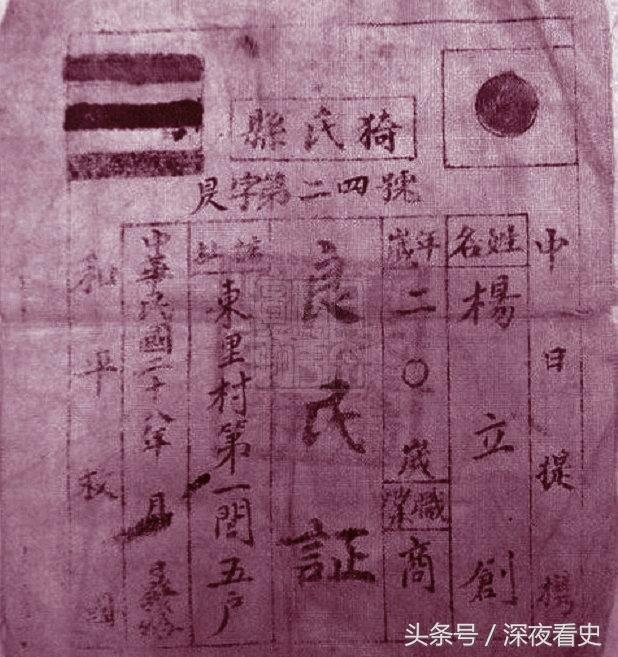 猗氏縣
良字第二四號
中日提携
姓名
楊立創
年歲
二〇歲
職業
商
良民証
址
東里村第一閭五戶
中華民國二十八年 月
和平救國
头条号 / 深夜看史